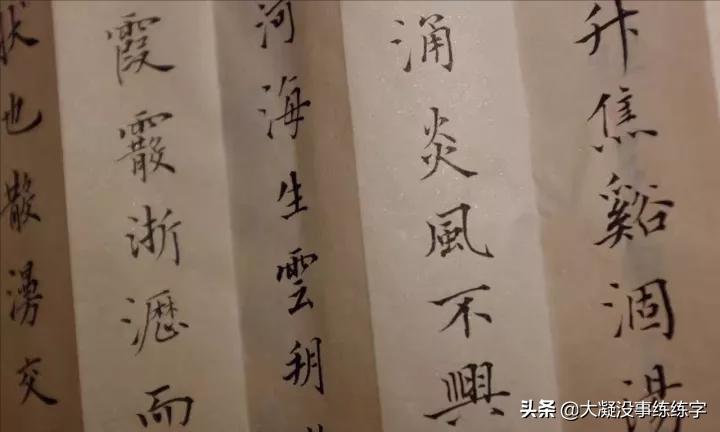 升焦谿涸湯
涌炎風不興
河海生雲朔
霞霰淅瀝而
狀也散漫交
头条 @大凝没事练练字